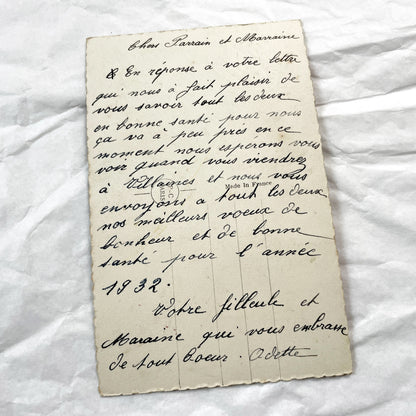 Chers Parrain et Marraine
En réponse à votre lettre
qui nous à fait plaisir de
vous savoir tout les deux
en bonne santé pour nous
ça va à peu près en ce
moment nous esperons vous
voir quand vous viendres
à Villaines et nous vous
Made in France
PARIS
envoyons a tout les deux
nos meilleurs voeux de
bonheur et de bonne
santé pour l'année
1932.
Votre filleule et
Maraine qui vous embrasse
de tout Coeur. Odette